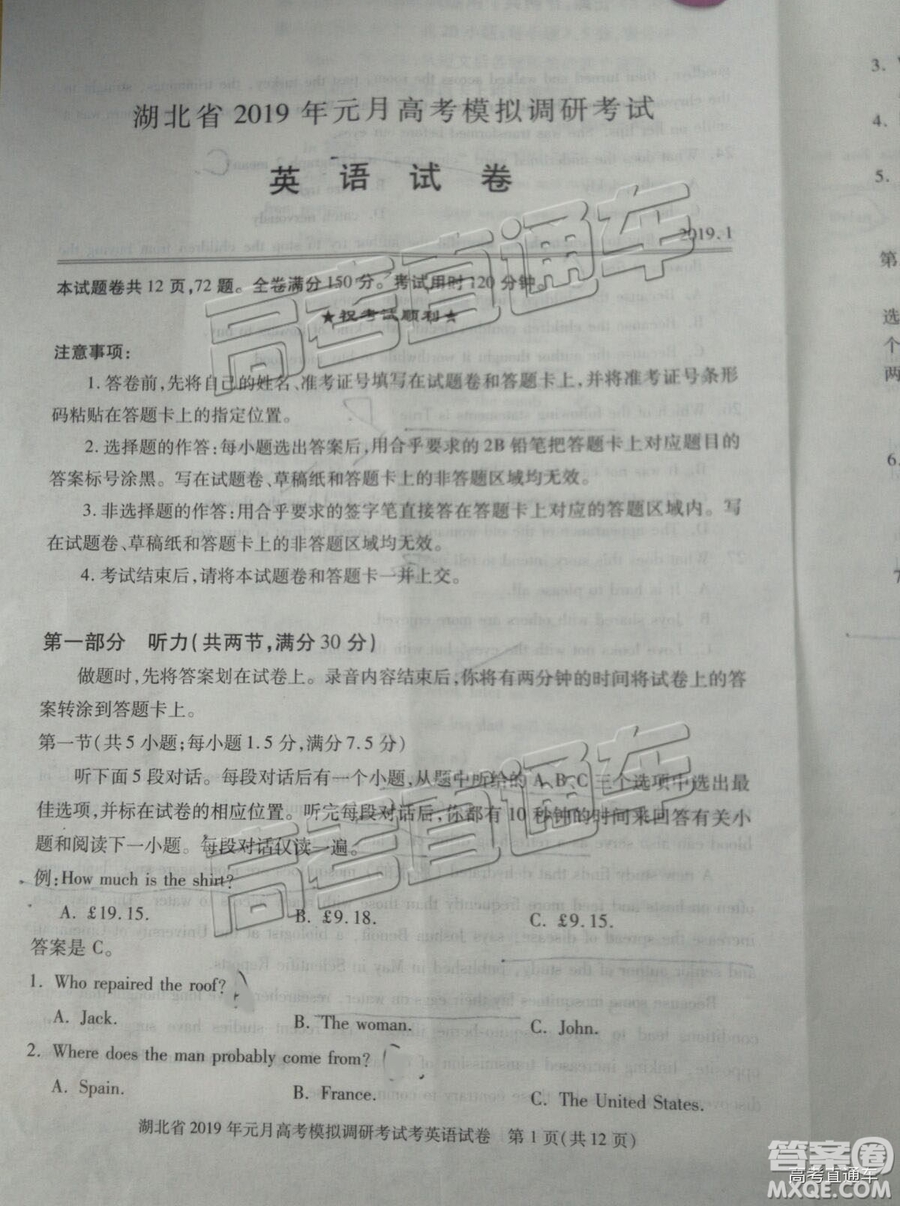 湖北省 2019 年元月高考模拟调研考试
英 语 试 卷
2019.1
本试题卷共 12 页,72 题。全卷满分 150 分。考试用时 120 分钟。
★祝考试顺利★
注意事项:
1. 答卷前,先将自己的姓名、准考证号填写在试题卷和答题卡上,并将准考证号条形
码粘贴在答题卡上的指定位置。
2. 选择题的作答:每小题选出答案后,用合乎要求的 2B 铅笔把答题卡上对应题目的
答案标号涂黑。写在试题卷、草稿纸和答题卡上的非答题区域均无效。
3. 非选择题的作答:用合乎要求的签字笔直接答在答题卡上对应的答题区域内。写
在试题卷、草稿纸和答题卡上的非答题区域均无效。
4. 考试结束后,请将本试题卷和答题卡一并上交。
第一部分 听力(共两节,满分 30 分)
做题时,先将答案划在试卷上。录音内容结束后,你将有两分钟的时间将试卷上的答
案转涂到答题卡上。
第一节(共 5 小题;每小题 1.5 分,满分 7.5 分)
听下面 5 段对话。每段对话后有一个小题,从题中所给的 A、B、C 三个选项中选出最
佳选项,并标在试卷的相应位置。听完每段对话后,你都有 10 秒钟的时间来回答有关小
题和阅读下一小题。每段对话仅读一遍。
例:How much is the shirt?
A. £19.15. B. £9.18. C. £9.15.
答案是 C。
1. Who repaired the roof?
A. Jack. B. The woman. C. John.
2. Where does the man probably come from?
A. Spain. B. France. C. The United States.
湖北省 2019 年元月高考模拟调研考试考英语试卷 第 1 页(共 12 页)
3.
4.
5.
第
选
个
两
6.
7
高考直通车
高考直通车
答案圈
高考直通车
MXQE.COM